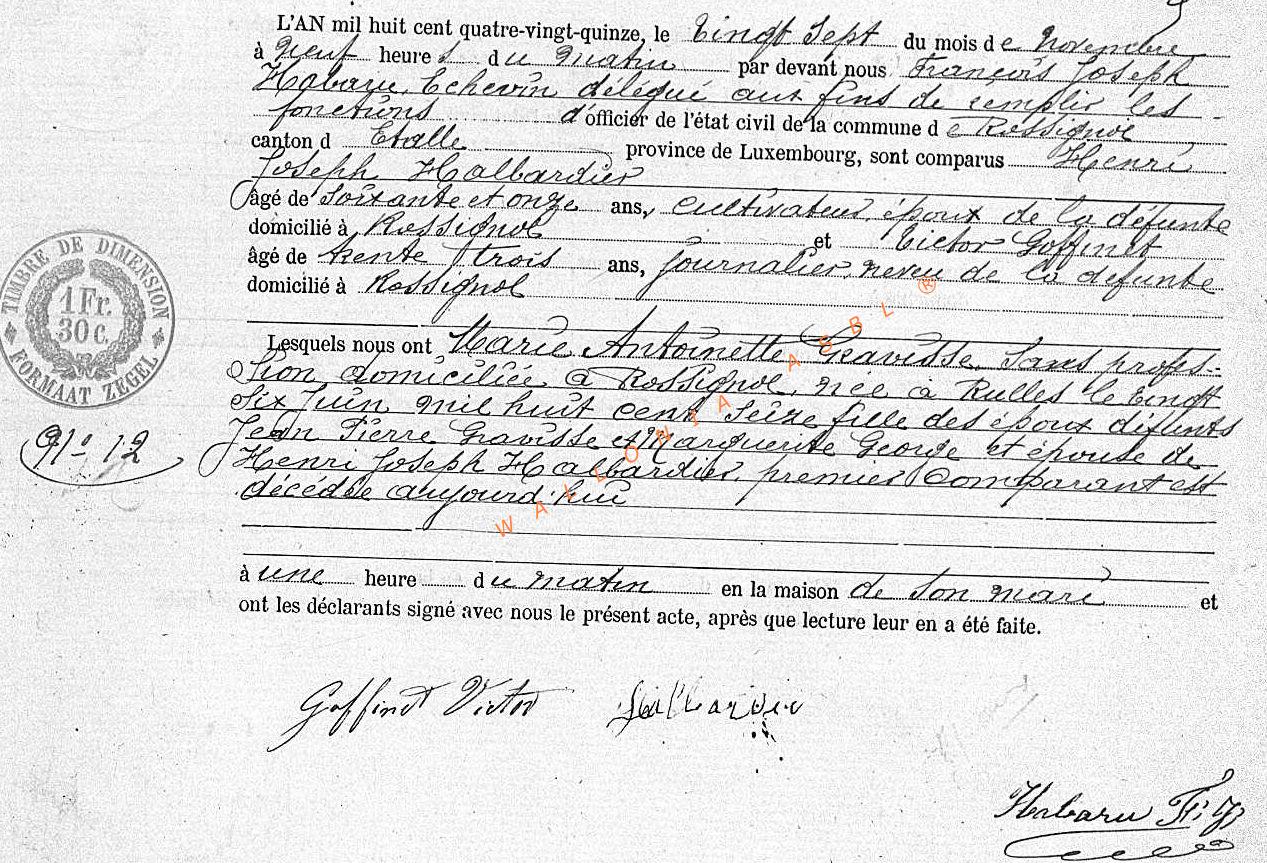 L'AN mil huit cent quatre-vingt-quinze, le vingt sept du mois de Novembre
à neuf heures du matin par devant nous François Joseph
Habaru, Echevin délégué aux fins de remplir les
fonctions d'officier de l'état civil de la commune de Rossignol
canton d Etalle province de Luxembourg, sont comparus Henri
Joseph Halbardier
âgé de Soixante et onze ans, cultivateur, époux de la défunte
domicilié à Rossignol et Victor Goffinet
âgé de trente trois ans, journalier, neveu de la défunte
domicilié à Rossignol
Lesquels nous ont Marie Antoinette Gravisse, Sans profes-
sion domiciliée à Rossignol, née à Rulles le vingt
six Juin mil huit cent seize fille des époux défunts
Jean Pierre Gravisse et Marguerite George et épouse de
Henri Joseph Halbardier, premier Comparant est
décédée aujourd'hui
à une heure du matin en la maison de son mari et
ont les déclarants signé avec nous le présent acte, après que lecture leur en a été faite.
TIMBRE DE DIMENSION
1 Fr.
30 C.
FORMAAT ZEGEL
No 12
WALLONIA ASBL ®
Goffinet Victor Halbardier
Habaru